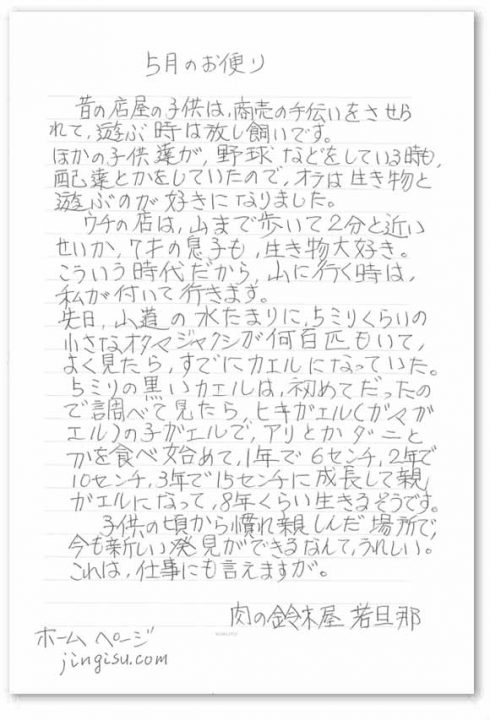 5月のお便り
昔の店屋の子供は,商売の手伝いをさせら
れて,遊ぶ時は放し飼いです。
ほかの子供達が,野球などをしている時も,
配達とかをしていたので,オラは生き物と
遊ぶのが好きになりました。
ウチの店は,山まで歩いて2分と近い
せいか,7才の息子も,生き物大好き。
こういう時代だから,山に行く時は,
私が付いて行きます。
先日,山道の水たまりに,5ミリくらいの
小さなオタマジャクシが何百匹もいて,
よく見たら,すでにカエルになっていた。
5ミリの黒いカエルは,初めてだったの
で調べて見たら,ヒキガエル(ガマガ
エル)の子ガエルで,アリとかダニと
かを食べ始めて,1年で6センチ,2年で
10センチ,3年で15センチに成長して親
ガエルになって,8年くらい生きるそうです。
子供の頃から慣れ親しんだ場所で,
今も新しい発見ができるなんて,うれしい。
これは,仕事にも言えますが。
肉の鈴木屋 若旦那
ホームページ
jingisu.com